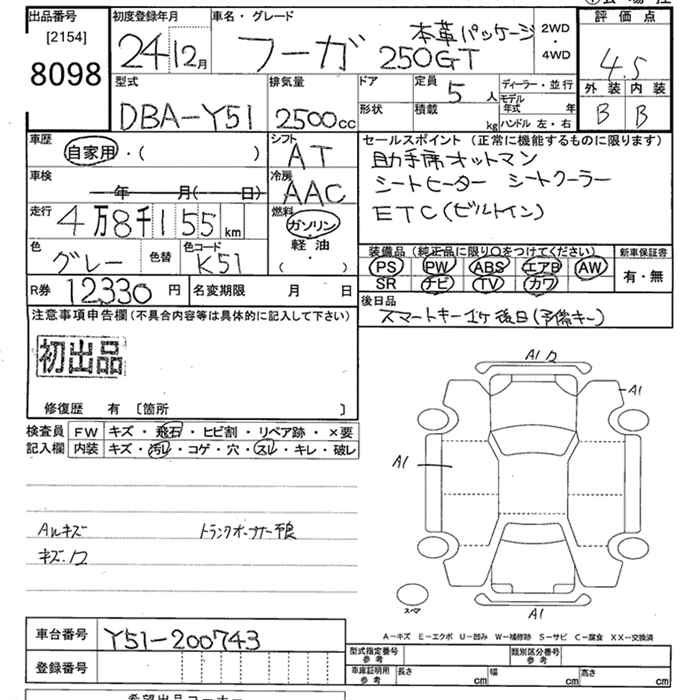 出品番号 初度登録年月 車名・グレード 評価点
[2154]
8098
24年12月 フーガ 本革パッケージ 250GT 2WD 4WD 4.5
外装 内装
B B
型式 排気量 ドア 定員 5人 ディーラー・並行
DBA-Y51 2500cc 形状 積載 kg モデル年式 年
ハンドル 左・右
車歴 シフト セールスポイント(正常に機能するものに限ります)
自家用・( ) AT 助手席オットマン
車検 冷房 シートヒーター シートクーラー
年 月( 日) AAC
走行 燃料 ETC(ビルトイン)
4万8千155km ガソリン・軽油・( )
色 色替 色コード 装備品(純正品に限り○をつけてください) 新車保証書
グレー K51 PS PW ABS エアB AW 有・無
SR チビ TV カワ
R券 12330円 名変期限 月 日 後日品
スマートキー1ケ後日(予備キー)
注意事項申告欄(不具合内容等は具体的に記入して下さい)
初出品
修復歴 有 〔箇所 〕
検査員 FW キズ・飛石・ヒビ割・リペア跡・×要
記入欄 内装 キズ・汚レ・コゲ・穴・スレ・キレ・破レ
A1
A1
A1
A1
Aルキズ
キズ.ワ
スペア
A-キズ E-エクボ U-凹み W-補修跡 S-サビ C-腐食 XX-交換済
車台番号 Y51-200743
型式指定番号 参考 類別区分番号 参考
登録番号 車庫証明用 参考 長さ cm 幅 cm 高さ cm
希望出品コーナー